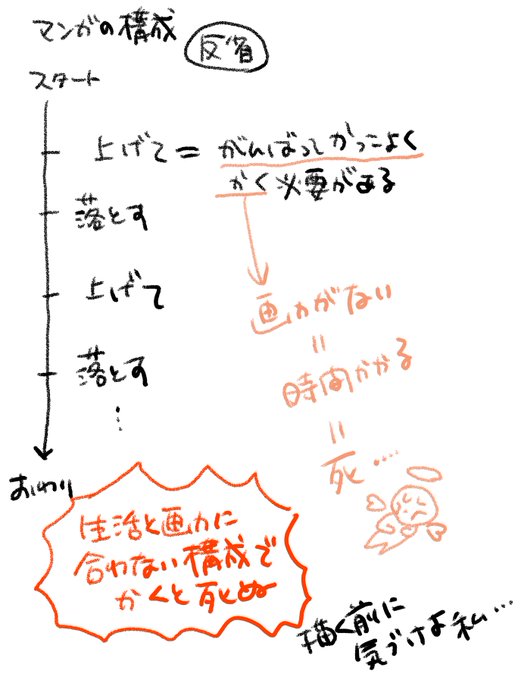 マンガの構成
反省
スタート
上げて = がんばってかっこよく
かく必要がある
落とす
上げて
落とす
⋮
おわり
画力がない
=
時間かかる
=
死....
生活と画力に
合わない構成で
かくと死ぬ
描く前に
気づけよ私...